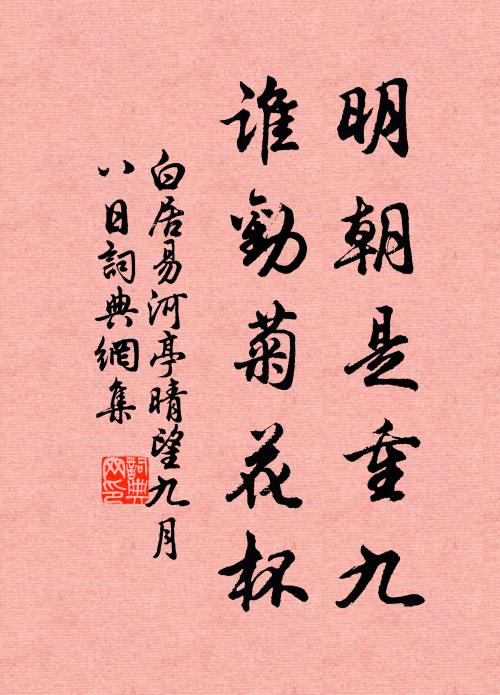 明朝是重九
誰勸菊花杯
白居易河亭晴望九月
八日詞典網集
詞典
网印